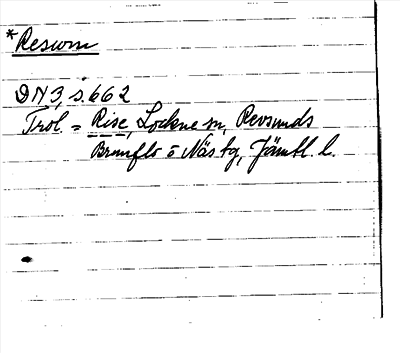 *Reswm
DN 3, s. 662
Trol. = Rise, Lockne sn, Revsunds
Brunflo o Näs tg, Jämtl. l.